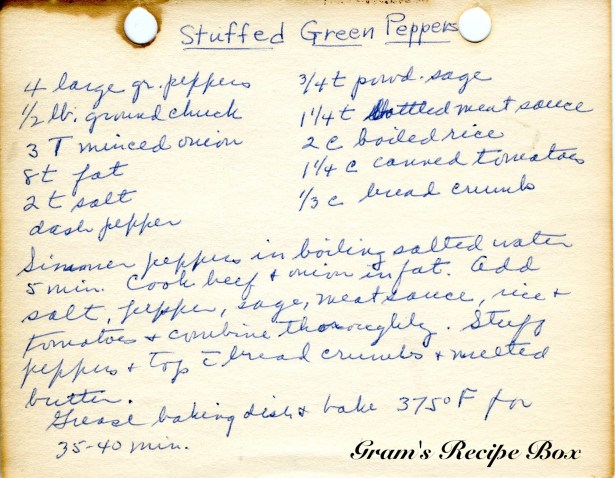 Stuffed Green Peppers
4 large gr. peppers
1/2 lb. ground chuck
3 T minced onion
8t fat
2 t salt
dash pepper
3/4 t powd. sage
1 1/4 t bottled meat sauce
2 c boiled rice
1 1/4 c canned tomatoes
1/3 c bread crumbs
Simmer peppers in boiling salted water
5 min. Cook beef + onion in fat. Add
salt, pepper, sage, meat sauce, rice +
tomatoes + combine thoroughly. Stuff
peppers + top c̄ bread crumbs + melted
butter.
Grease baking dish + bake 375°F for
35-40 min.
Gram's Recipe Box